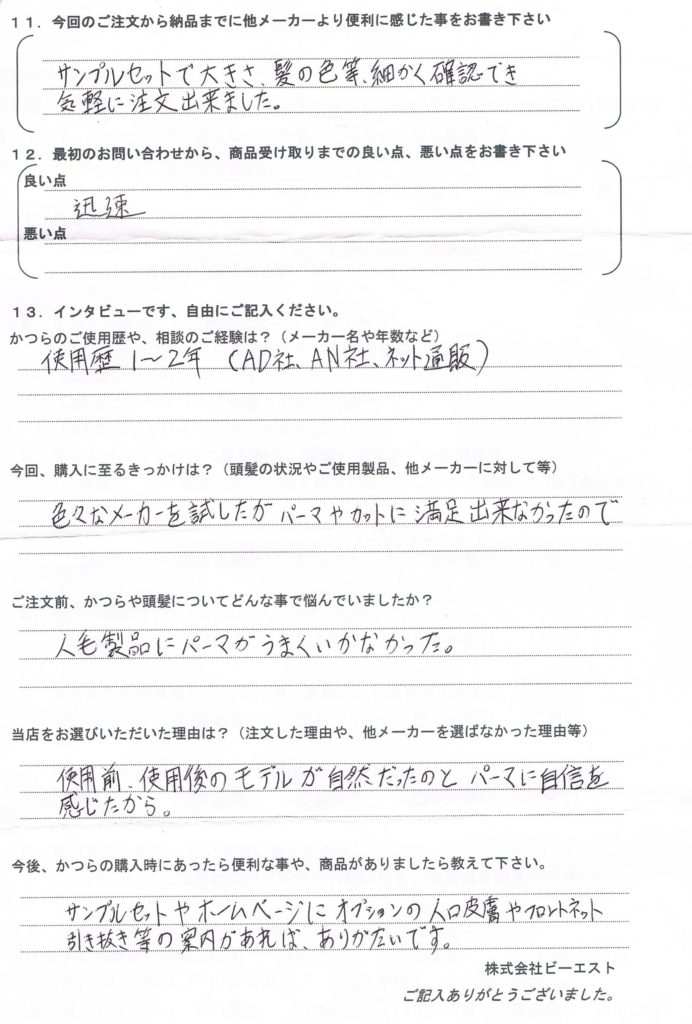 11．今回のご注文から納品までに他メーカーより便利に感じた事をお書き下さい
サンプルセットで大きさ、髪の色等、細かく確認でき
気軽に注文出来ました。
12．最初のお問い合わせから、商品受け取りまでの良い点、悪い点をお書き下さい
良い点
迅速
悪い点
13．インタビューです、自由にご記入ください。
かつらのご使用歴や、相談のご経験は？（メーカー名や年数など）
使用歴 1～2年 （AD社、AN社、ネット通販）
今回、購入に至るきっかけは？（頭髪の状況やご使用製品、他メーカーに対して等）
色々なメーカーを試したが パーマやカットに満足出来なかったので
ご注文前、かつらや頭髪についてどんな事で悩んでいましたか？
人毛製品にパーマがうまくいかなかった。
当店をお選びいただいた理由は？（注文した理由や、他メーカーを選ばなかった理由等）
使用前、使用後のモデルが自然だったのと パーマに自信を
感じたから。
今後、かつらの購入時にあったら便利な事や、商品がありましたら教えて下さい。
サンプルセットやホームページにオプションの人口皮膚やフロントネット
引き抜き等の案内があれば、ありがたいです。
株式会社ビーエスト
ご記入ありがとうございました。